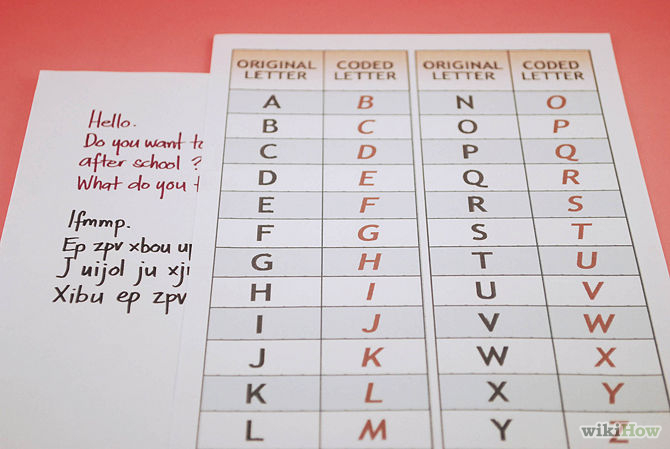 Hello.
Do you want to
after school ?
What do you t
Ifmmp.
Ep zpv xbou up
J uijol ju xj
Xibu ep zpv
ORIGINAL LETTER CODED LETTER ORIGINAL LETTER CODED LETTER
A B N O
B C O P
C D P Q
D E Q R
E F R S
F G S T
G H T U
H I U V
I J V W
J K W X
K L X Y
L M Y Z
wikiHow